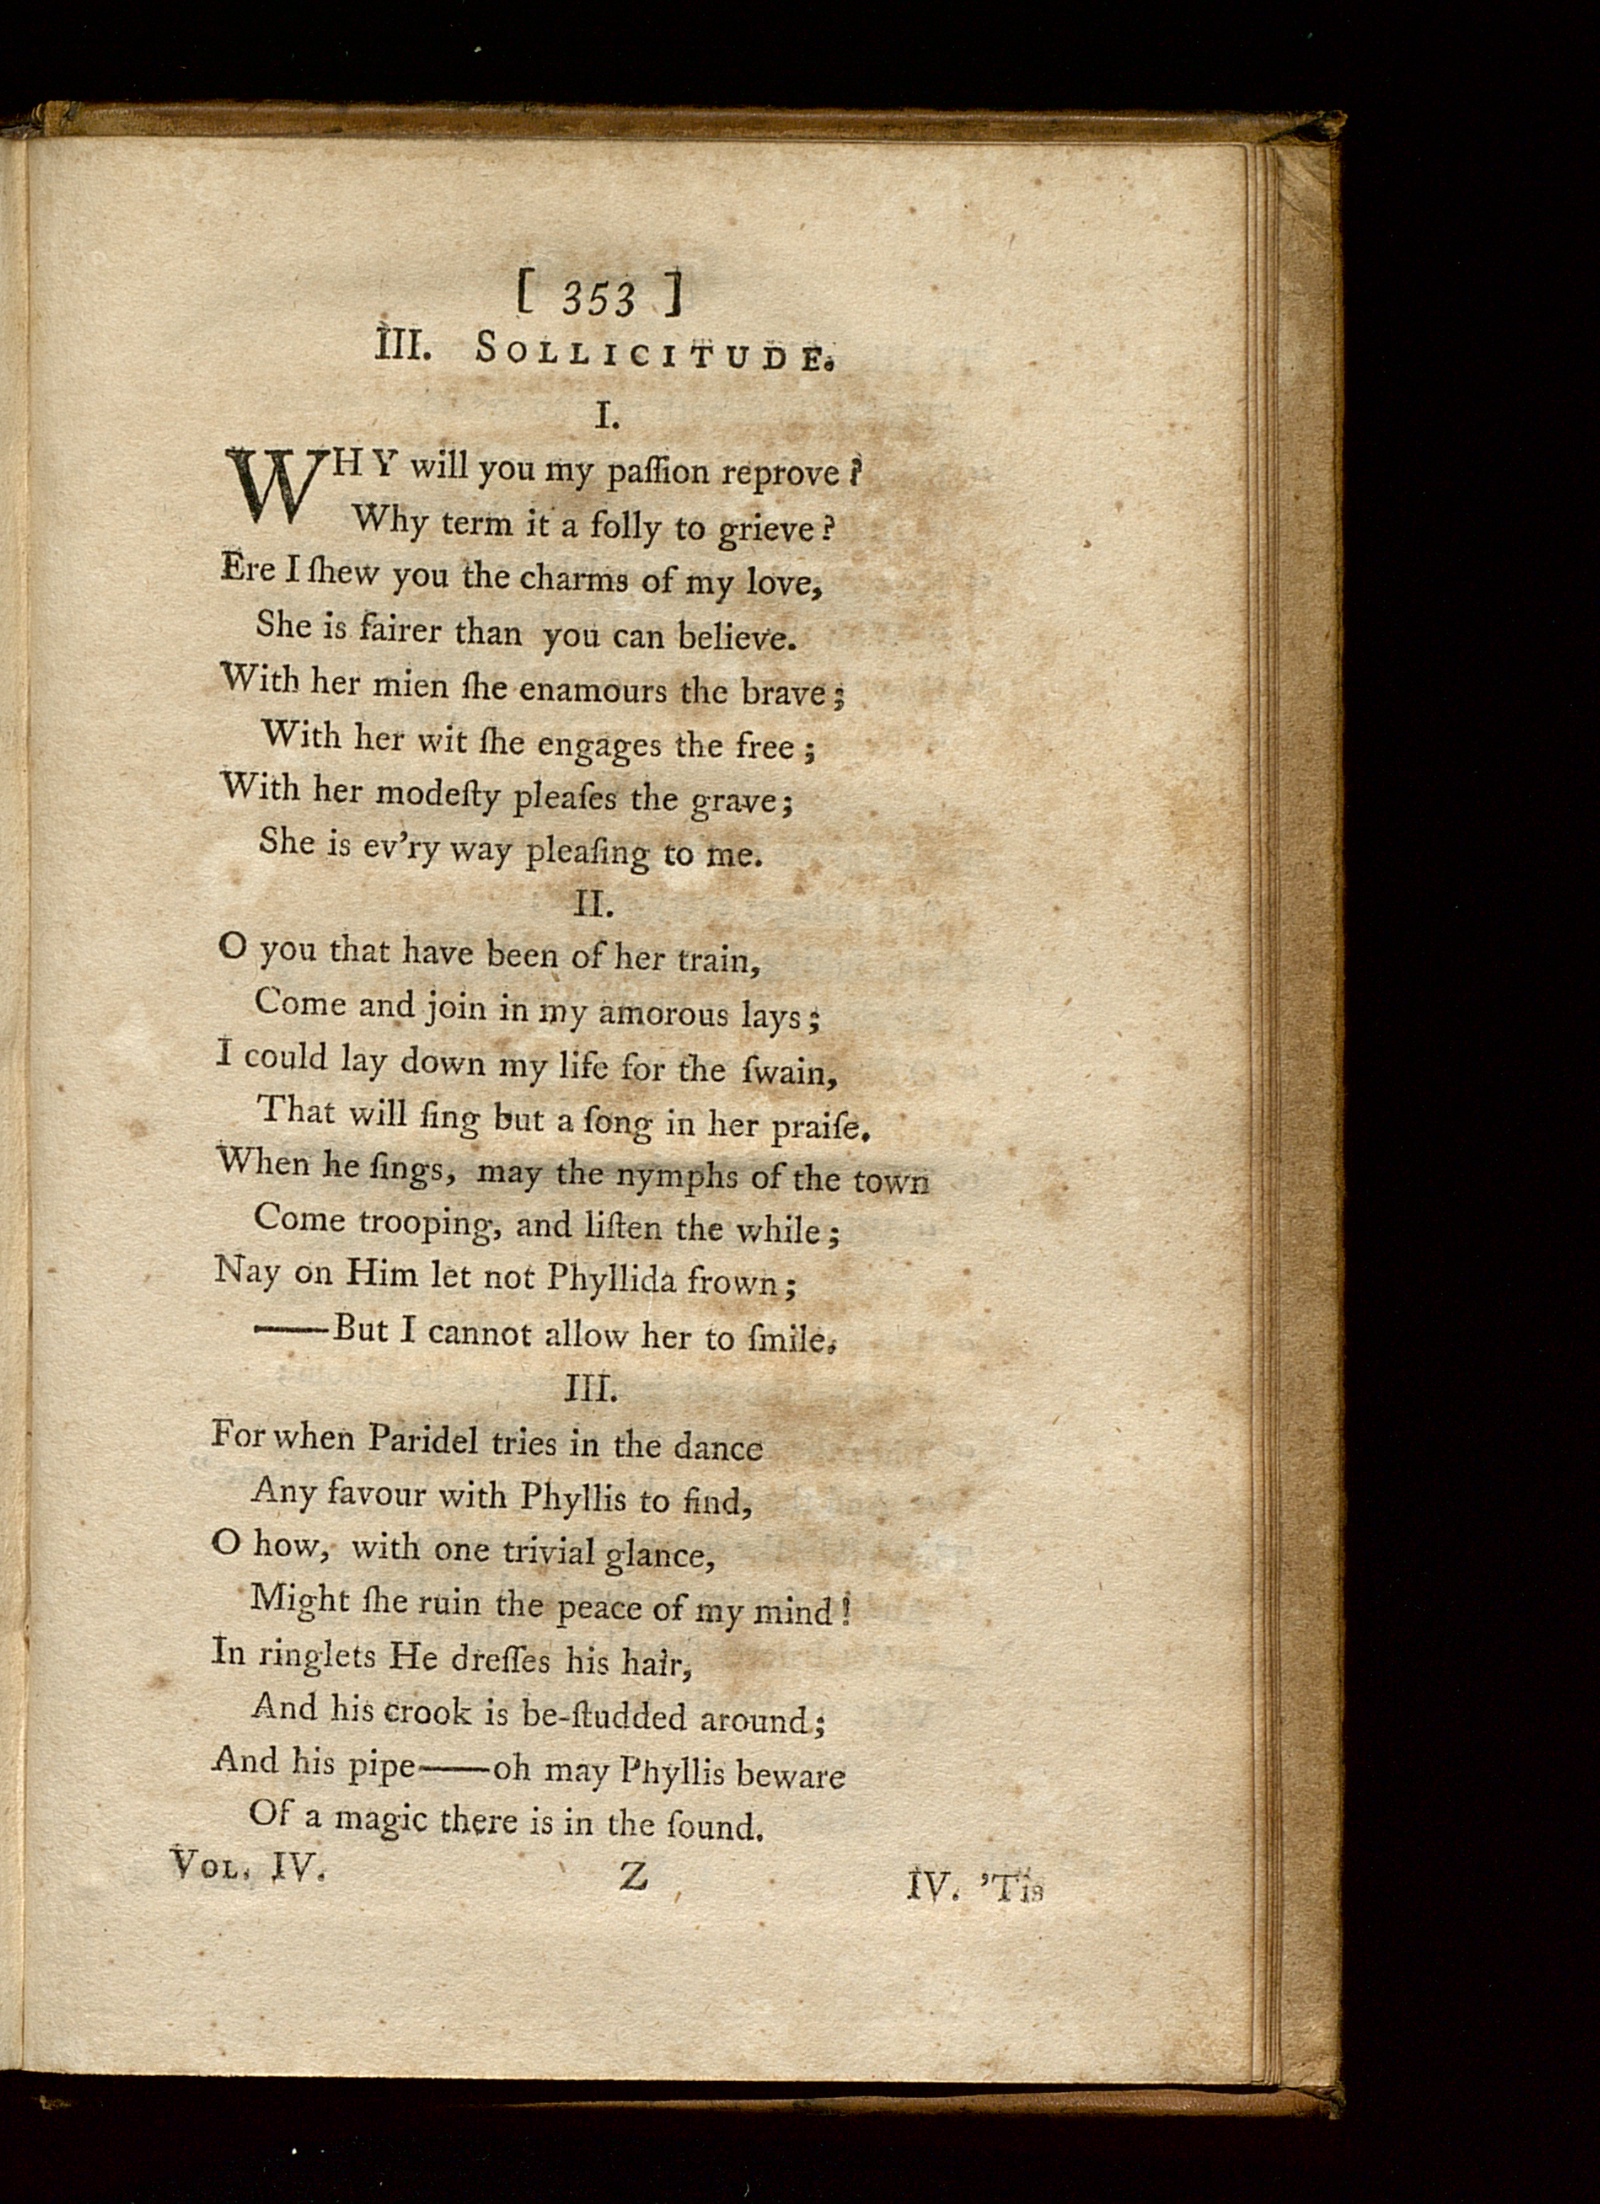 [ 353 ]
III. SOLLICITUDE.
I.
WHY will you my paſſion reprove?
Why term it a folly to grieve?
Ere I ſhew you the charms of my love,
She is fairer than you can believe.
With her mien ſhe enamours the brave;
With her wit ſhe engages the free;
With her modeſty pleaſes the grave;
She is ev'ry way pleaſing to me.
II.
O you that have been of her train,
Come and join in my amorous lays;
I could lay down my life for the ſwain,
That will ſing but a ſong in her praiſe.
When he ſings, may the nymphs of the town
Come trooping, and liſten the while;
Nay on Him let not Phyllida frown;
——But I cannot allow her to ſmile.
III.
For when Paridel tries in the dance
Any favour with Phyllis to find,
O how, with one trivial glance,
Might ſhe ruin the peace of my mind!
In ringlets He dreſſes his hair,
And his crook is be-ſtudded around;
And his pipe——oh may Phyllis beware
Of a magic there is in the ſound.
VOL. IV. Z IV. 'Tis